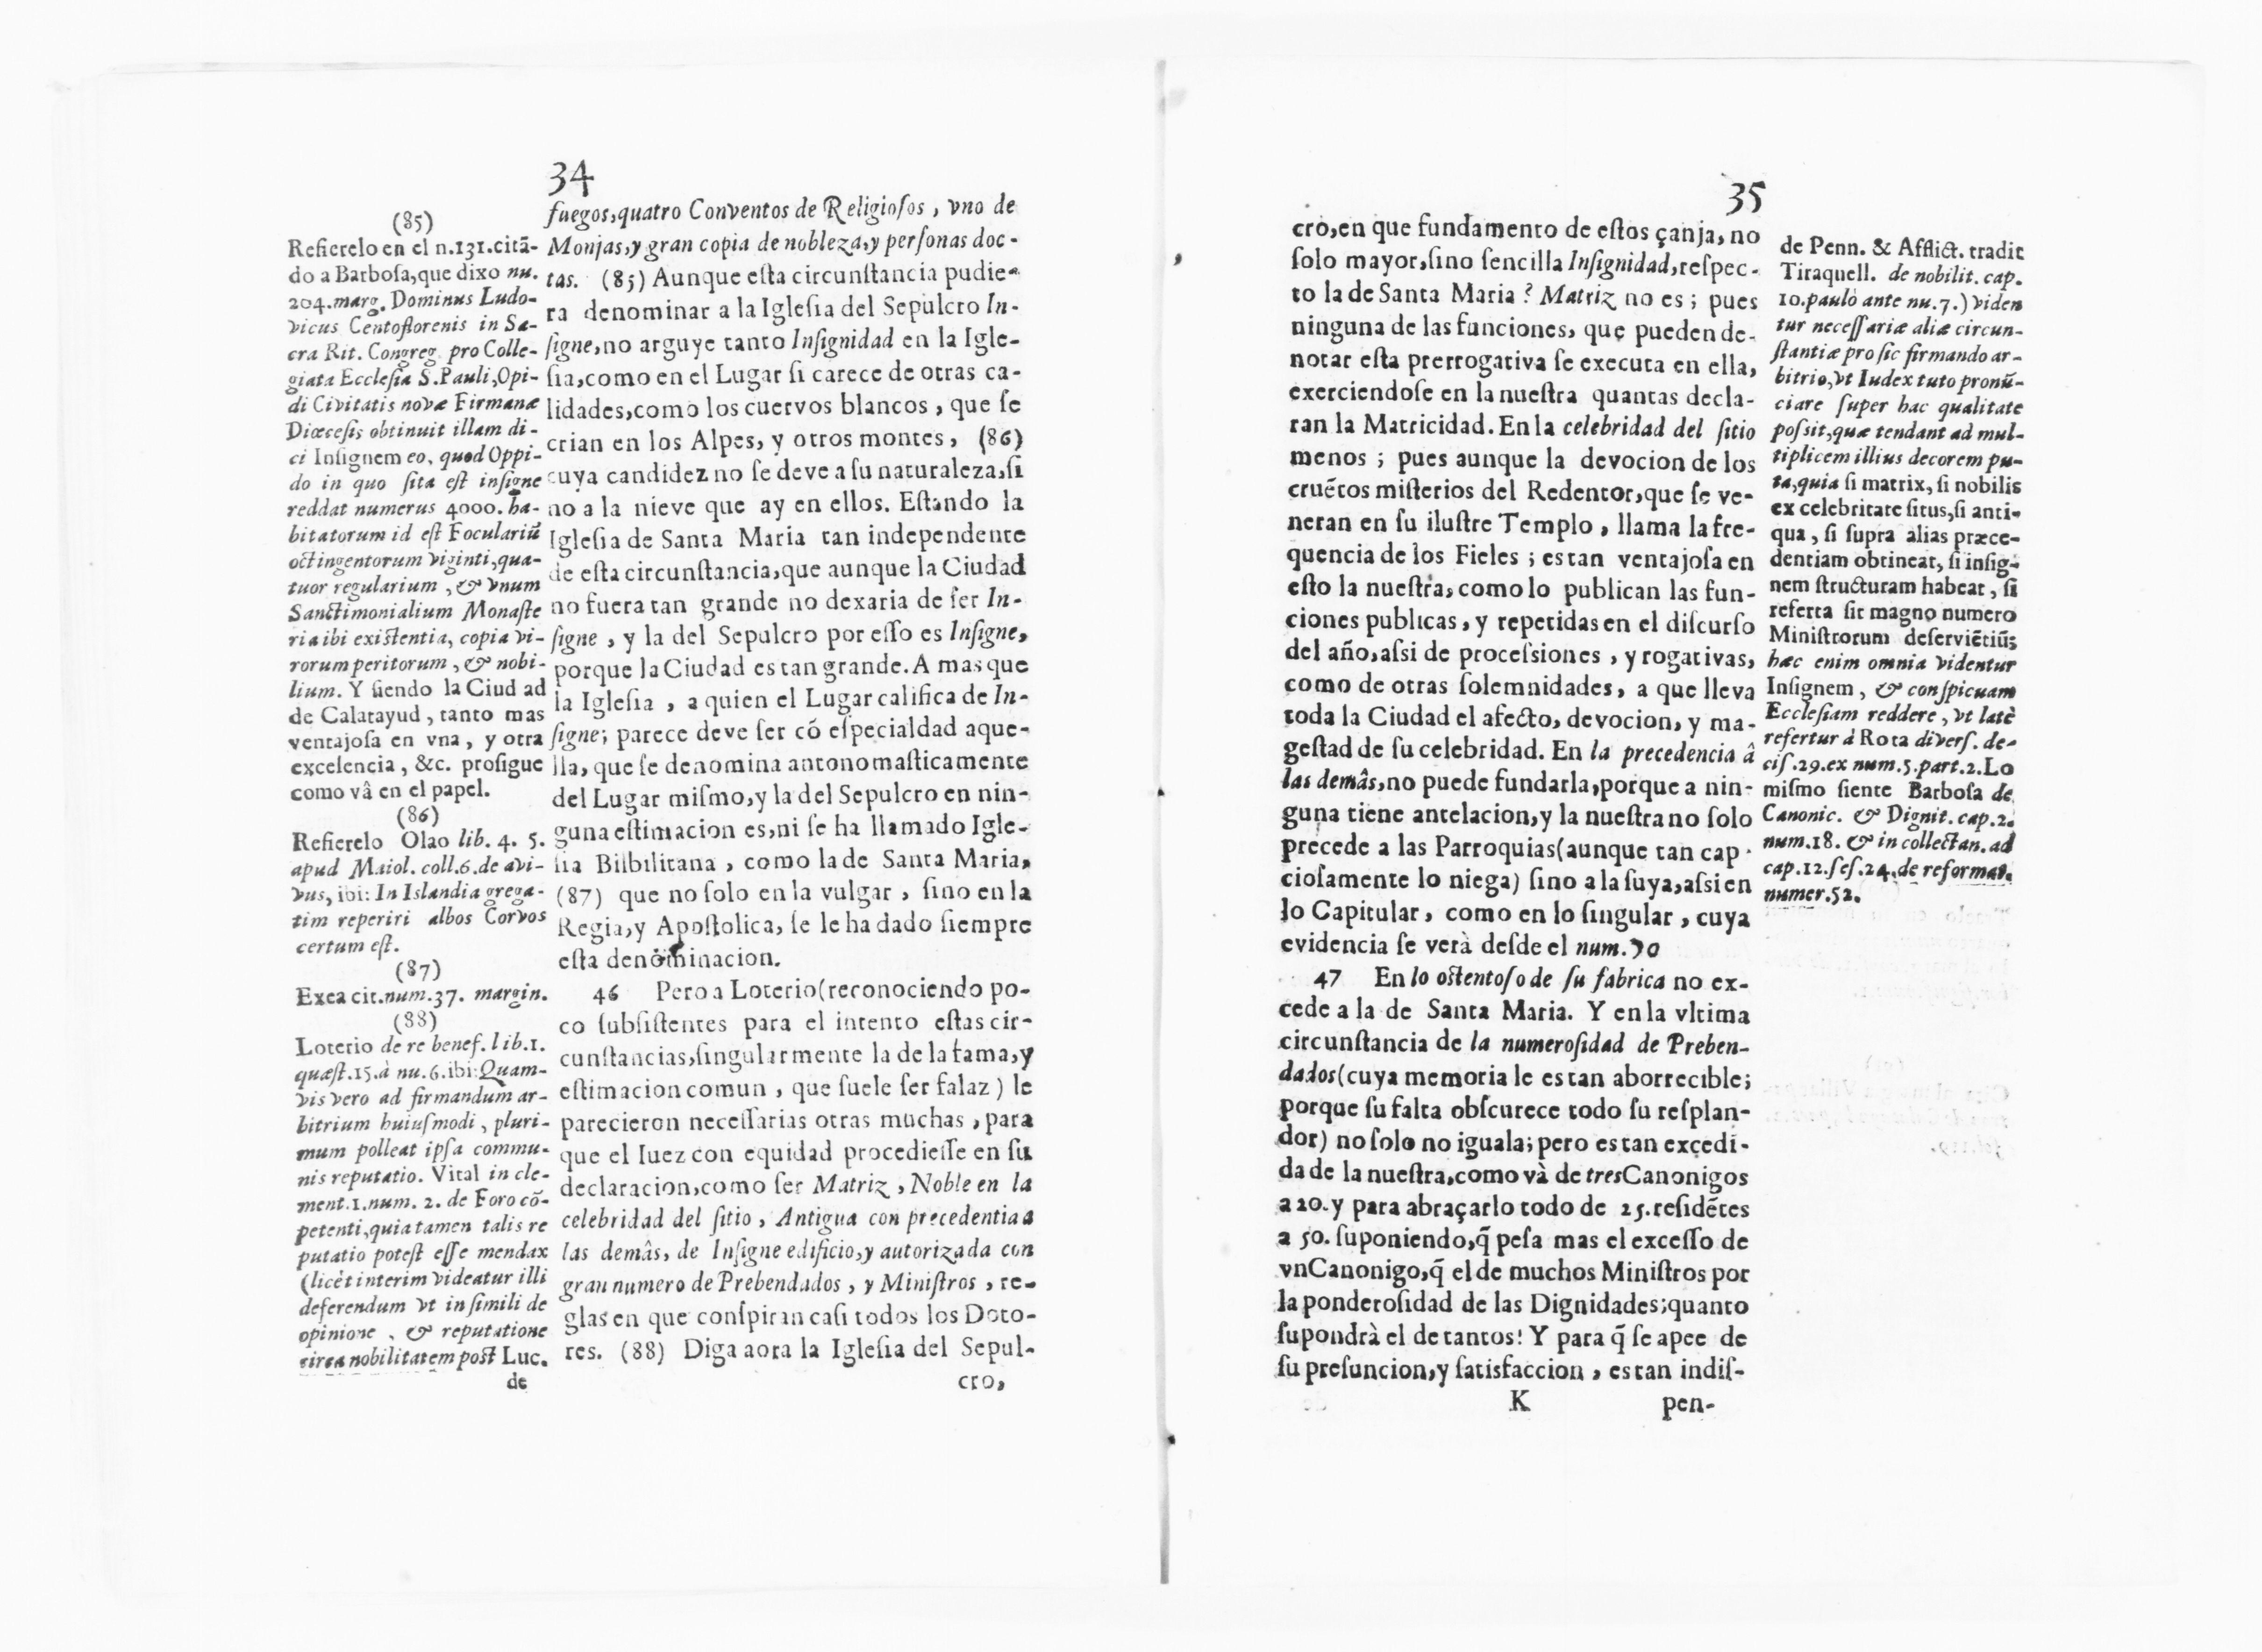 34
(85)
Refierelo en el n.131.citã-
do a Barbosa,que dixo nu.
204.marg. Dominus Ludo-
vicus Centoflorenis in Sa-
cra Rit. Congreg. pro Colle-
giata Ecclesia S.Pauli,Opi-
di Civitatis novæ Firmanæ
Diœcesis obtinuit illam di-
ci Insignem eo, quod Oppi-
do in quo sita est insigne
reddat numerus 4000. ha-
bitatorum id est Foculariũ
octingentorum viginti,qua-
tuor regularium , & vnum
Sanctimonialium Monaste
ria ibi existentia, copia vi-
rorum peritorum , & nobi-
lium. Y siendo la Ciud ad
de Calatayud , tanto mas
ventajosa en vna , y otra
excelencia , &c. prosigue
como vâ en el papel.
(86)
Refierelo Olao lib. 4. 5.
apud Maiol. coll.6.de avi-
vus, ibi: In Islandia grega-
tim reperiri albos Corvos
certum est.
(87)
Exea cit.num.37. margin.
(88)
Loterio de re benef. lib.1.
quæst.15.à nu.6.ibi:Quam-
vis vero ad firmandum ar-
bitrium huiusmodi , pluri-
mum polleat ipsa commu-
nis reputatio. Vital in cle-
ment.1.num. 2. de Foro cõ-
petenti,quia tamen talis re
putatio potest esse mendax
(licèt interim videatur illi
deferendum vt in simili de
opinione , & reputatione
circa nobilitatem post Luc.
de
fuegos,quatro Conventos de Religiosos , vno de
Monjas,y gran copia de nobleza,y personas doc-
tas. (85) Aunque esta circunstancia pudie-
ra denominar a la Iglesia del Sepulcro In-
signe,no arguye tanto Insignidad en la Igle-
sia,como en el Lugar si carece de otras ca-
lidades,como los cuervos blancos , que se
crian en los Alpes, y otros montes, (86)
cuya candidez no se deve a su naturaleza,si
no a la nieve que ay en ellos. Estando la
Iglesia de Santa Maria tan independente
de esta circunstancia,que aunque la Ciudad
no fuera tan grande no dexaria de ser In-
signe , y la del Sepulcro por esso es Insigne,
porque la Ciudad es tan grande. A mas que
la Iglesia , a quien el Lugar califica de In-
signe; parece deve ser cõ especialdad aque-
lla, que se denomina antonomasticamente
del Lugar mismo,y la del Sepulcro en nin-
guna estimacion es,ni se ha llamado Igle-
sia Bilbilitana , como la de Santa Maria,
(87) que no solo en la vulgar , sino en la
Regia,y Apostolica, se le ha dado siempre
esta denominacion.
46 Pero a Loterio(reconociendo po-
co subsistentes para el intento estas cir-
cunstancias,singularmente la de la fama,y
estimacion comun , que suele ser falaz) le
parecieron necessarias otras muchas , para
que el Iuez con equidad procediesse en su
declaracion,como ser Matriz , Noble en la
celebridad del sitio , Antigua con precedentia a
las demâs, de Insigne edificio,y autorizada con
gran numero de Prebendados , y Ministros , re-
glas en que conspiran casi todos los Doto-
res. (88) Diga aora la Iglesia del Sepul-
cro,
35
cro,en que fundamento de estos çanja, no
solo mayor,sino sencilla Insignidad,respec-
to la de Santa Maria ? Matriz no es ; pues
ninguna de las funciones, que pueden de-
notar esta prerrogativa se executa en ella,
exerciendose en la nuestra quantas decla-
ran la Matricidad. En la celebridad del sitio
menos ; pues aunque la devocion de los
cruẽtos misterios del Redentor,que se ve-
neran en su ilustre Templo , llama la fre-
quencia de los Fieles ; es tan ventajosa en
esto la nuestra, como lo publican las fun-
ciones publicas, y repetidas en el discurso
del año,assi de processiones , y rogativas,
como de otras solemnidades, a que lleva
toda la Ciudad el afecto, devocion, y ma-
gestad de su celebridad. En la precedencia â
las demâs,no puede fundarla,porque a nin-
guna tiene antelacion,y la nuestra no solo
precede a las Parroquias(aunque tan cap
ciosamente lo niega) sino a la suya,assi en
lo Capitular, como en lo singular , cuya
evidencia se verà desde el num.70
47 En lo ostentoso de su fabrica no ex-
cede a la de Santa Maria. Y en la vltima
circunstancia de la numerosidad de Preben-
dados(cuya memoria le es tan aborrecible;
porque su falta obscurece todo su resplan-
dor) no solo no iguala; pero es tan excedi-
da de la nuestra,como và de tres Canonigos
a 20. y para abraçarlo todo de 25.residẽtes
a 50. suponiendo,q̃ pesa mas el excesso de
vn Canonigo,q̃ el de muchos Ministros por
la ponderosidad de las Dignidades;quanto
supondrà el de tantos! Y para q̃ se apee de
su presuncion,y satisfaccion , es tan indis-
K pen-
de Penn. & Afflict. tradit
Tiraquell. de nobilit. cap.
10.paulò ante nu.7.) viden
tur necessariæ aliæ circun-
stantiæ pro sic firmando ar-
bitrio,vt Iudex tuto pronũ-
ciare super hac qualitate
possit,quæ tendant ad mul-
tiplicem illius decorem pu-
ta,quia si matrix, si nobilis
ex celebritate situs,si anti-
qua , si supra alias præce-
dentiam obtineat, si insig-
nem structuram habeat , si
referta sit magno numero
Ministrorum deserviẽtiũ;
hæc enim omnia videntur
Insignem , & conspicuam
Ecclesiam reddere , vt latè
refertur à Rota divers. de-
cis.29.ex num.5.part.2. Lo
mismo siente Barbosa de
Canonic. & Dignit. cap.2.
num.18. & in collectan. ad
cap.12.ses.24.de reformat.
numer.52.